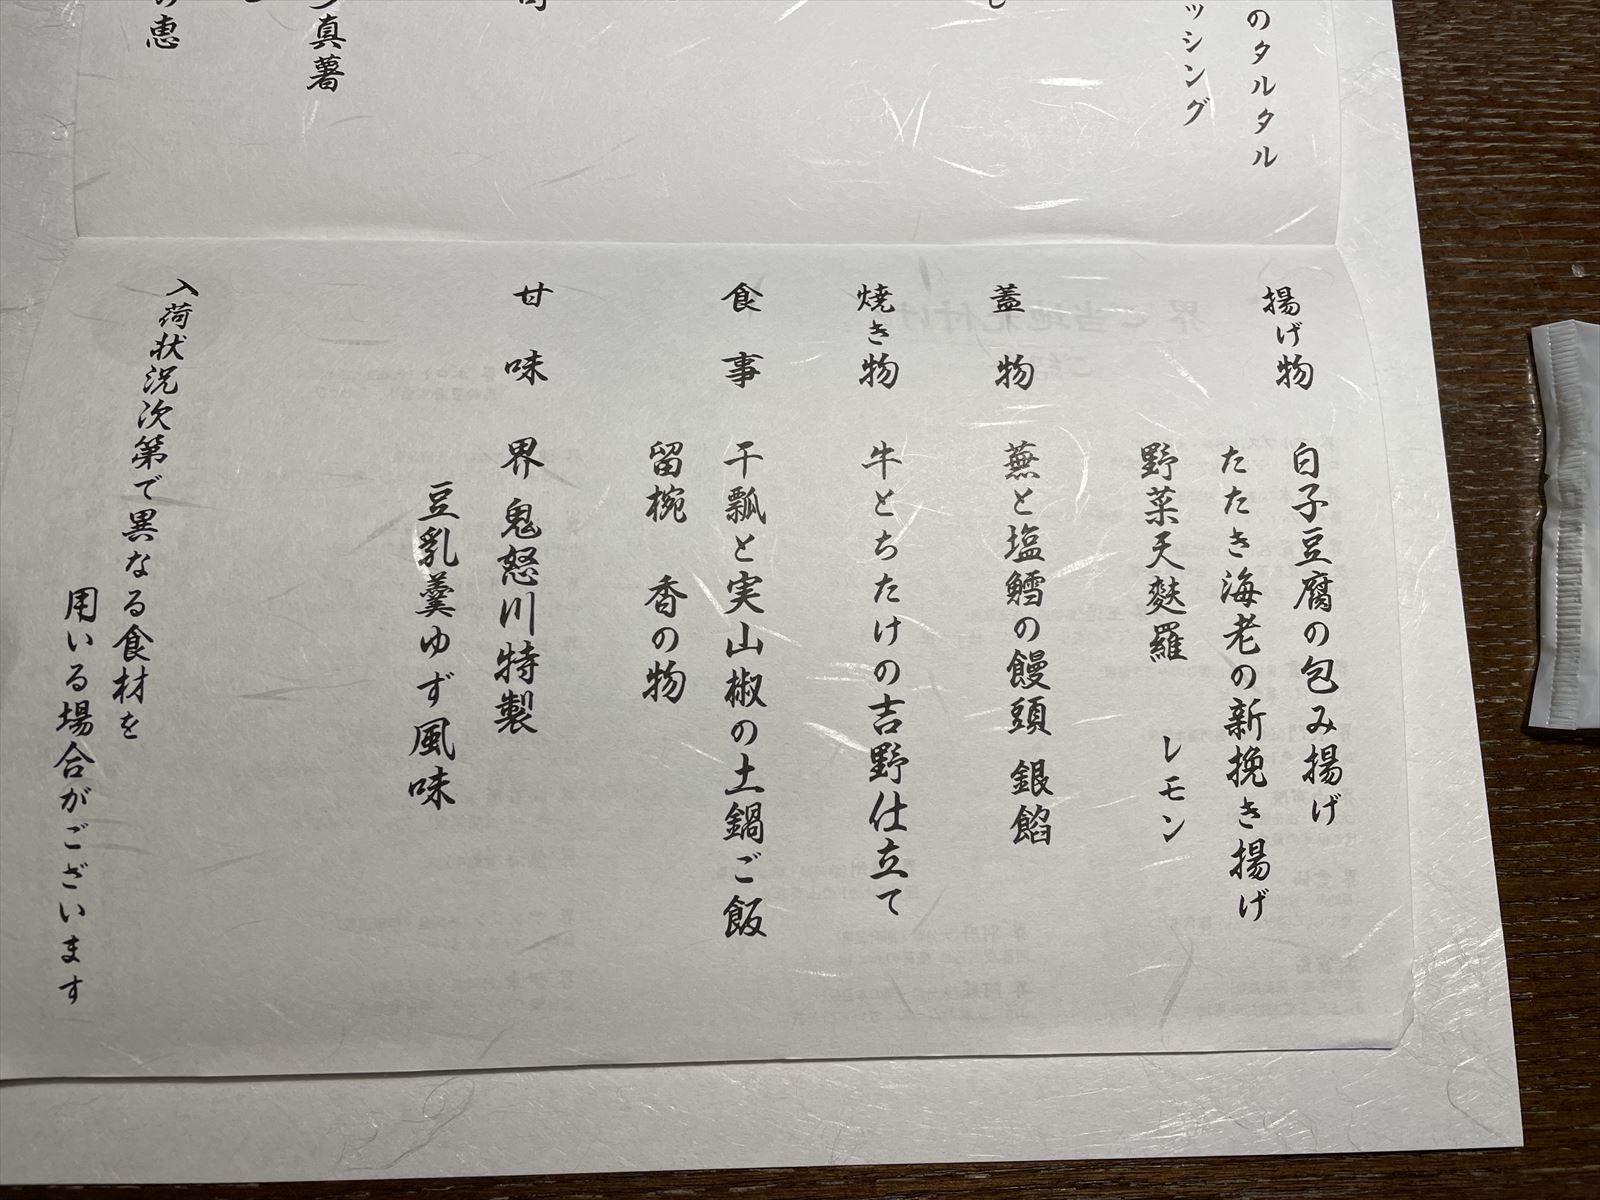 のタルタル
ッシング
真薯
の恵
揚げ物 白子豆腐の包み揚げ
たたき海老の新挽き揚げ
野菜天麩羅 レモン
蓋物 蕪と塩鱈の饅頭 銀餡
焼き物 牛とちたけの吉野仕立て
食事 干瓢と実山椒の土鍋ご飯
留椀 香の物
甘味 界 鬼怒川特製
豆乳羹ゆず風味
入荷状況次第で異なる食材を
用いる場合がございます